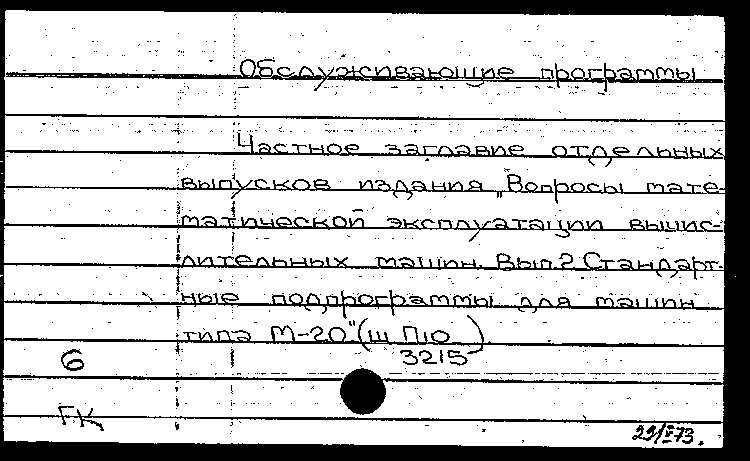 Обслуживающие программы
Частное заглавие отдельных
выпусков издания „Вопросы мате-
матической эксплуатации вычис-
лительных машин. Вып.2 Стандарт-
ные подпрограммы для машин
типа М-20" (ш П10
3215)
6
ГК
29/V-73.